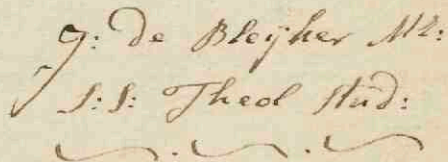 J: de Bleÿker Mz:
S: S: Theol Stud: